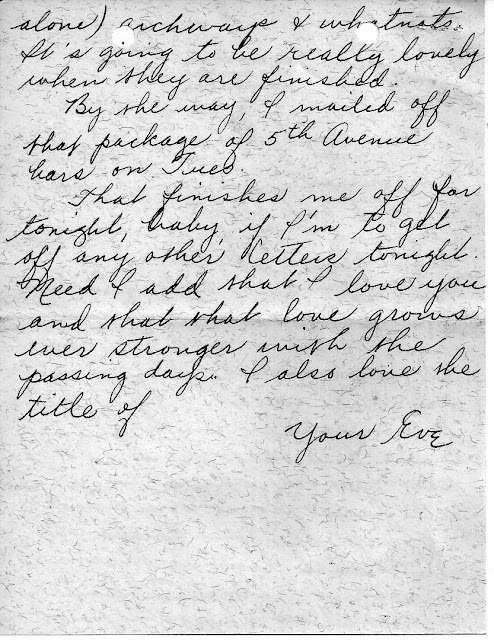 alone) archways & whatnots.
It's going to be really lovely
when they are finished.
By the way, I mailed off
that package of 5th Avenue
bars on Tues.
That finishes me off for
tonight, baby, if I'm to get
off any other letters tonight.
Need I add that I love you
and that that love grows
ever stronger with the
passing days. I also love the
title of
Your Eve